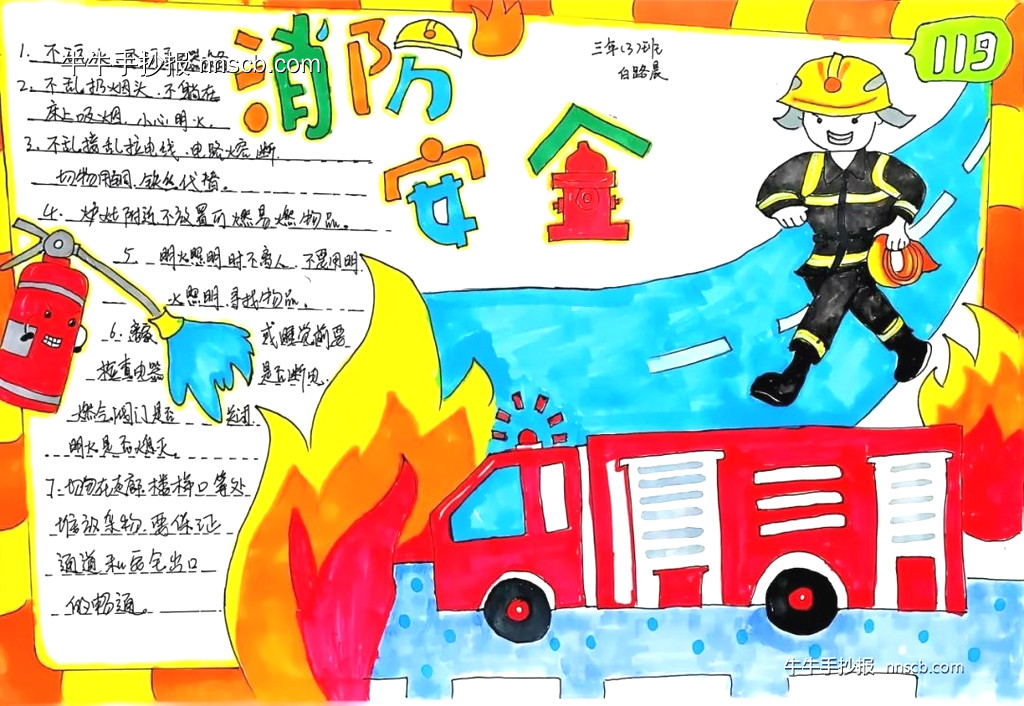 消防安全
119
三年(3)班
白路晨
牛牛手抄报 nnscb.com
1. 不
2. 不乱扔烟头、不躺在
床上吸烟、小心明火。
3. 不乱接乱拉电线、电路熔断
切勿用铜、铁丝代替。
4. 炉灶附近不放置可燃易燃物品。
5. 明火照明时不离人、不要用明
火照明、寻找物品。
6. 离家 或睡觉前要
检查电器 是否断电、
燃气阀门是否 关闭
明火是否熄灭。
7. 切勿在走廊、楼梯口等处
堆放杂物、要保证
通道和安全出口
的畅通。
牛牛手抄报 nnscb.com